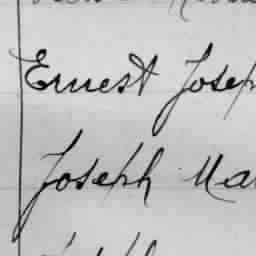 Ernest Josep
Joseph Ma